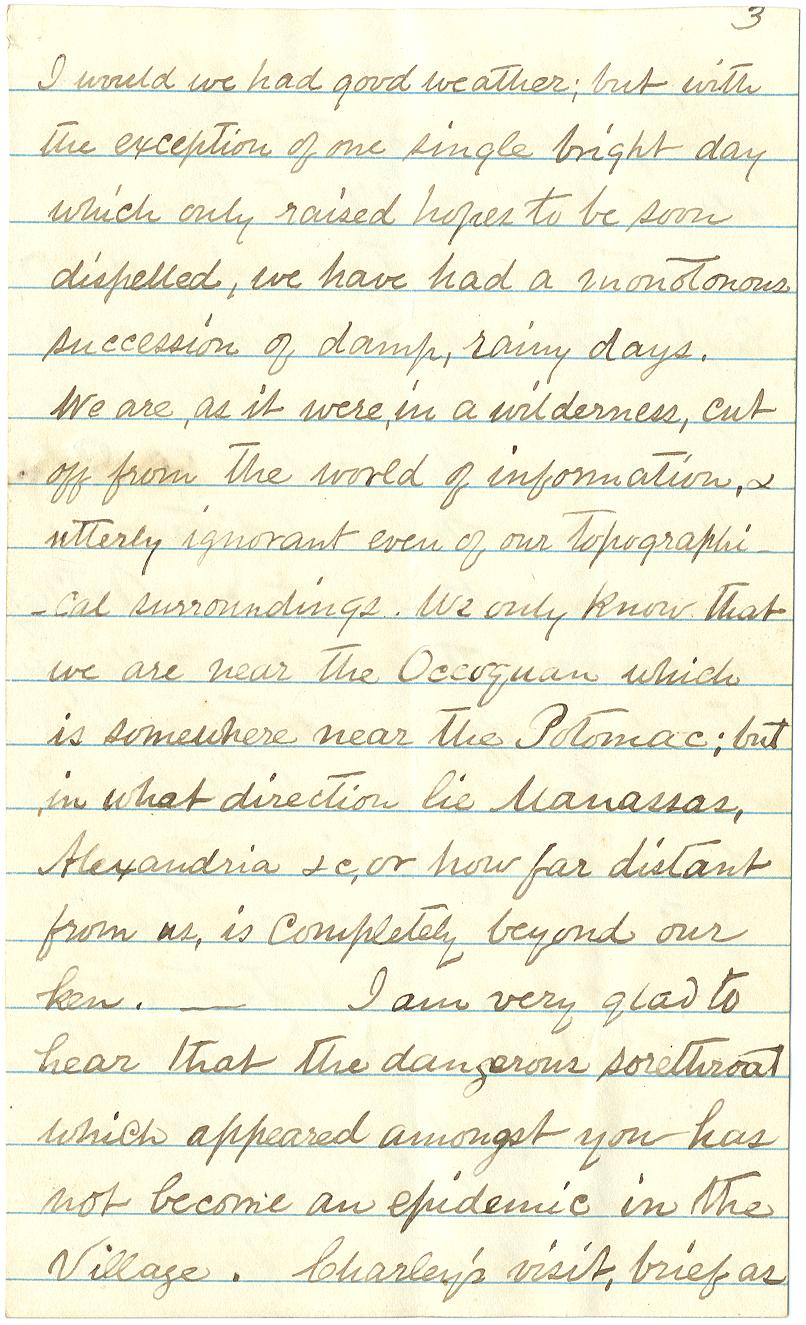 3
I would we had good weather; but with
the exception of one single bright day
which only raised hopes to be soon
dispelled, we have had a monotonous
succession of damp, rainy days.
We are, as it were, in a wilderness, cut
off from the world of information, &
utterly ignorant even of our topographi-
-cal surroundings. We only know that
we are near the Occoquan which
is somewhere near the Potomac; but
in what direction lie Manassas,
Alexandria &c, or how far distant
from us, is completely beyond our
ken. — I am very glad to
hear that the dangerous sorethroat
which appeared amongst you has
not become an epidemic in the
Village. Charley's visit, brief as